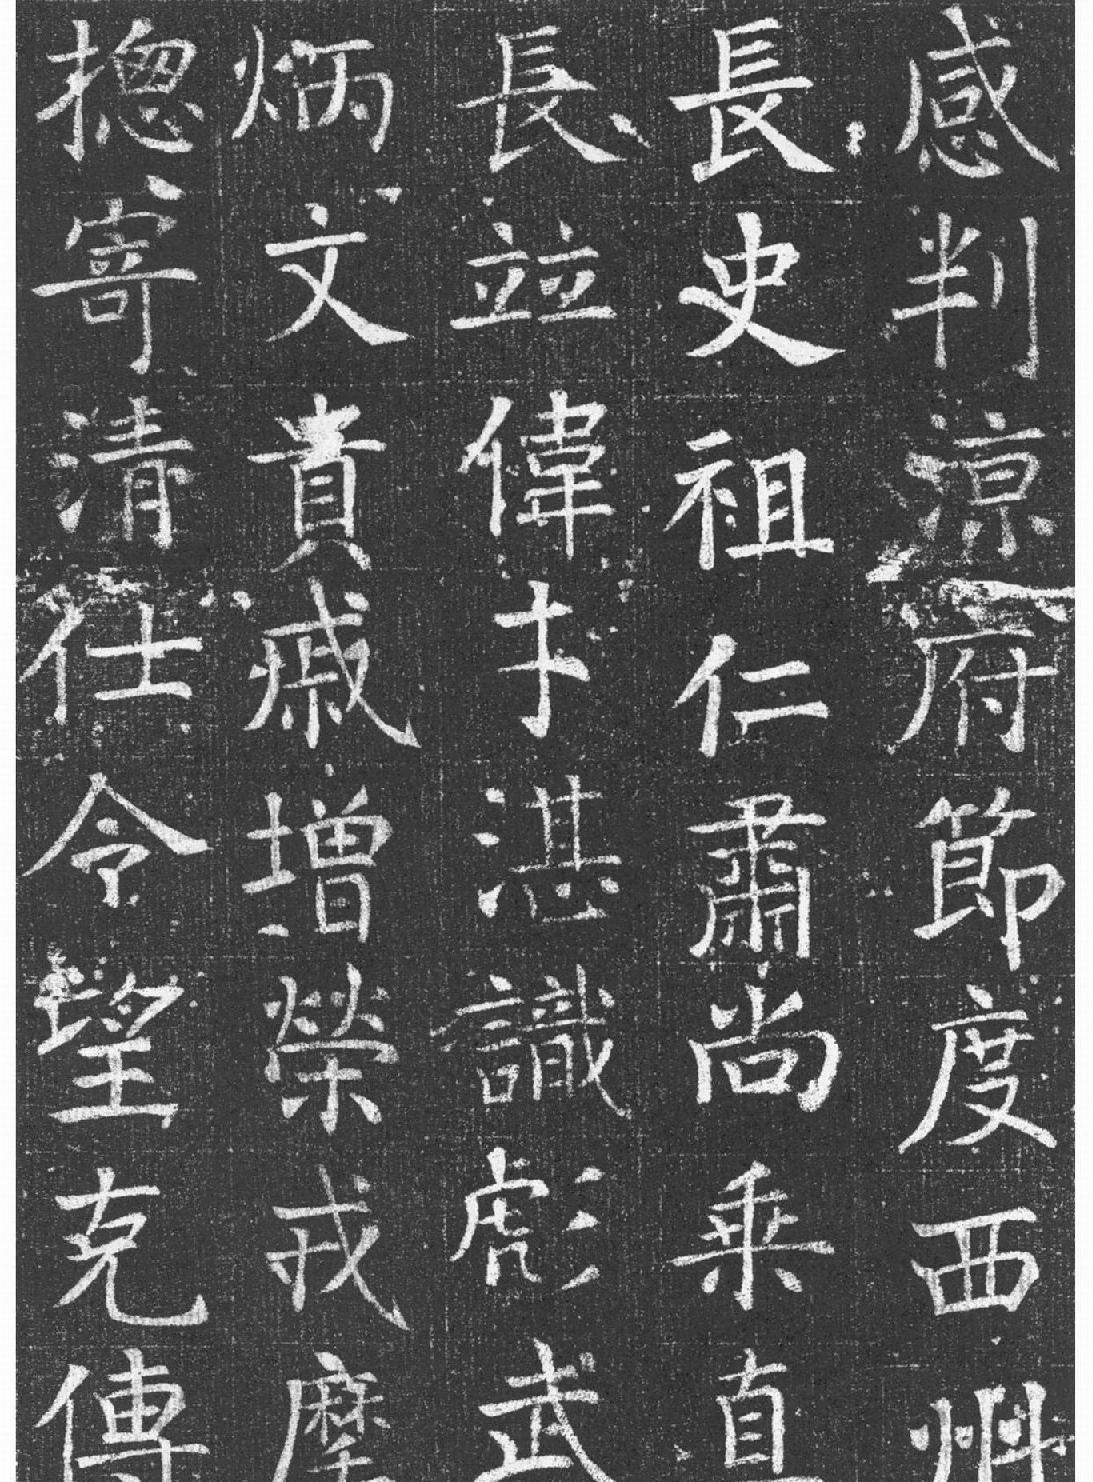 感判涼府節度西州
長史祖仁肅尚乗直
長並偉才湛識彪武
炳文貴戚增榮戎麾
揔寄清仕令望克傳